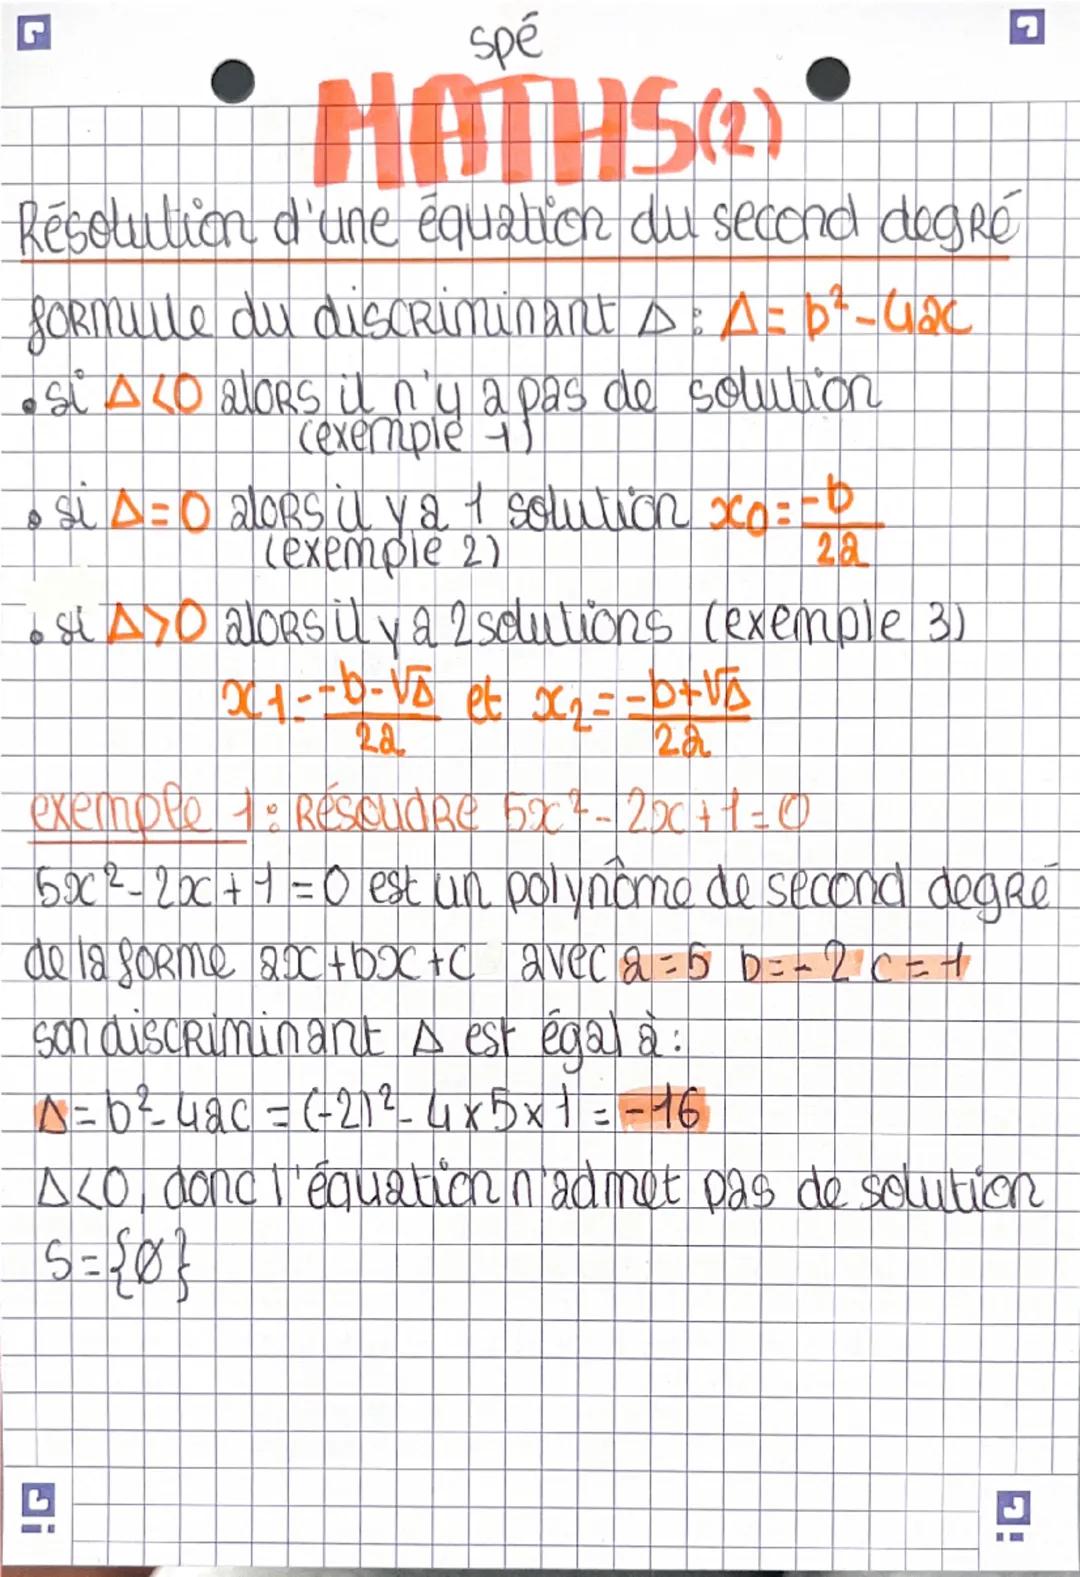 spé
MATHS (2)
Résolution d'une équation du second degré
formule du discriminant Δ : Δ = b² - 4ac
• si Δ < 0 alors il n'y a pas de solution
(exemple 1)
• si Δ = 0 alors il y a 1 solution x0 = -b/2a
(exemple 2)
• si Δ > 0 alors il y a 2 solutions (exemple 3)
x1 = -b-√Δ/2a et x2 = -b+√Δ/2a
exemple 1 : Résoudre 5x² - 2x + 1 = 0
5x² - 2x + 1 = 0 est un polynôme de second degré
de la forme ax + bx + c avec a = 5 b = -2 c = 1
son discriminant Δ est égal à :
Δ = b² - 4ac = (-2)² - 4 x 5 x 1 = -16
Δ < 0, donc l'équation n'admet pas de solution
S = {Ø}